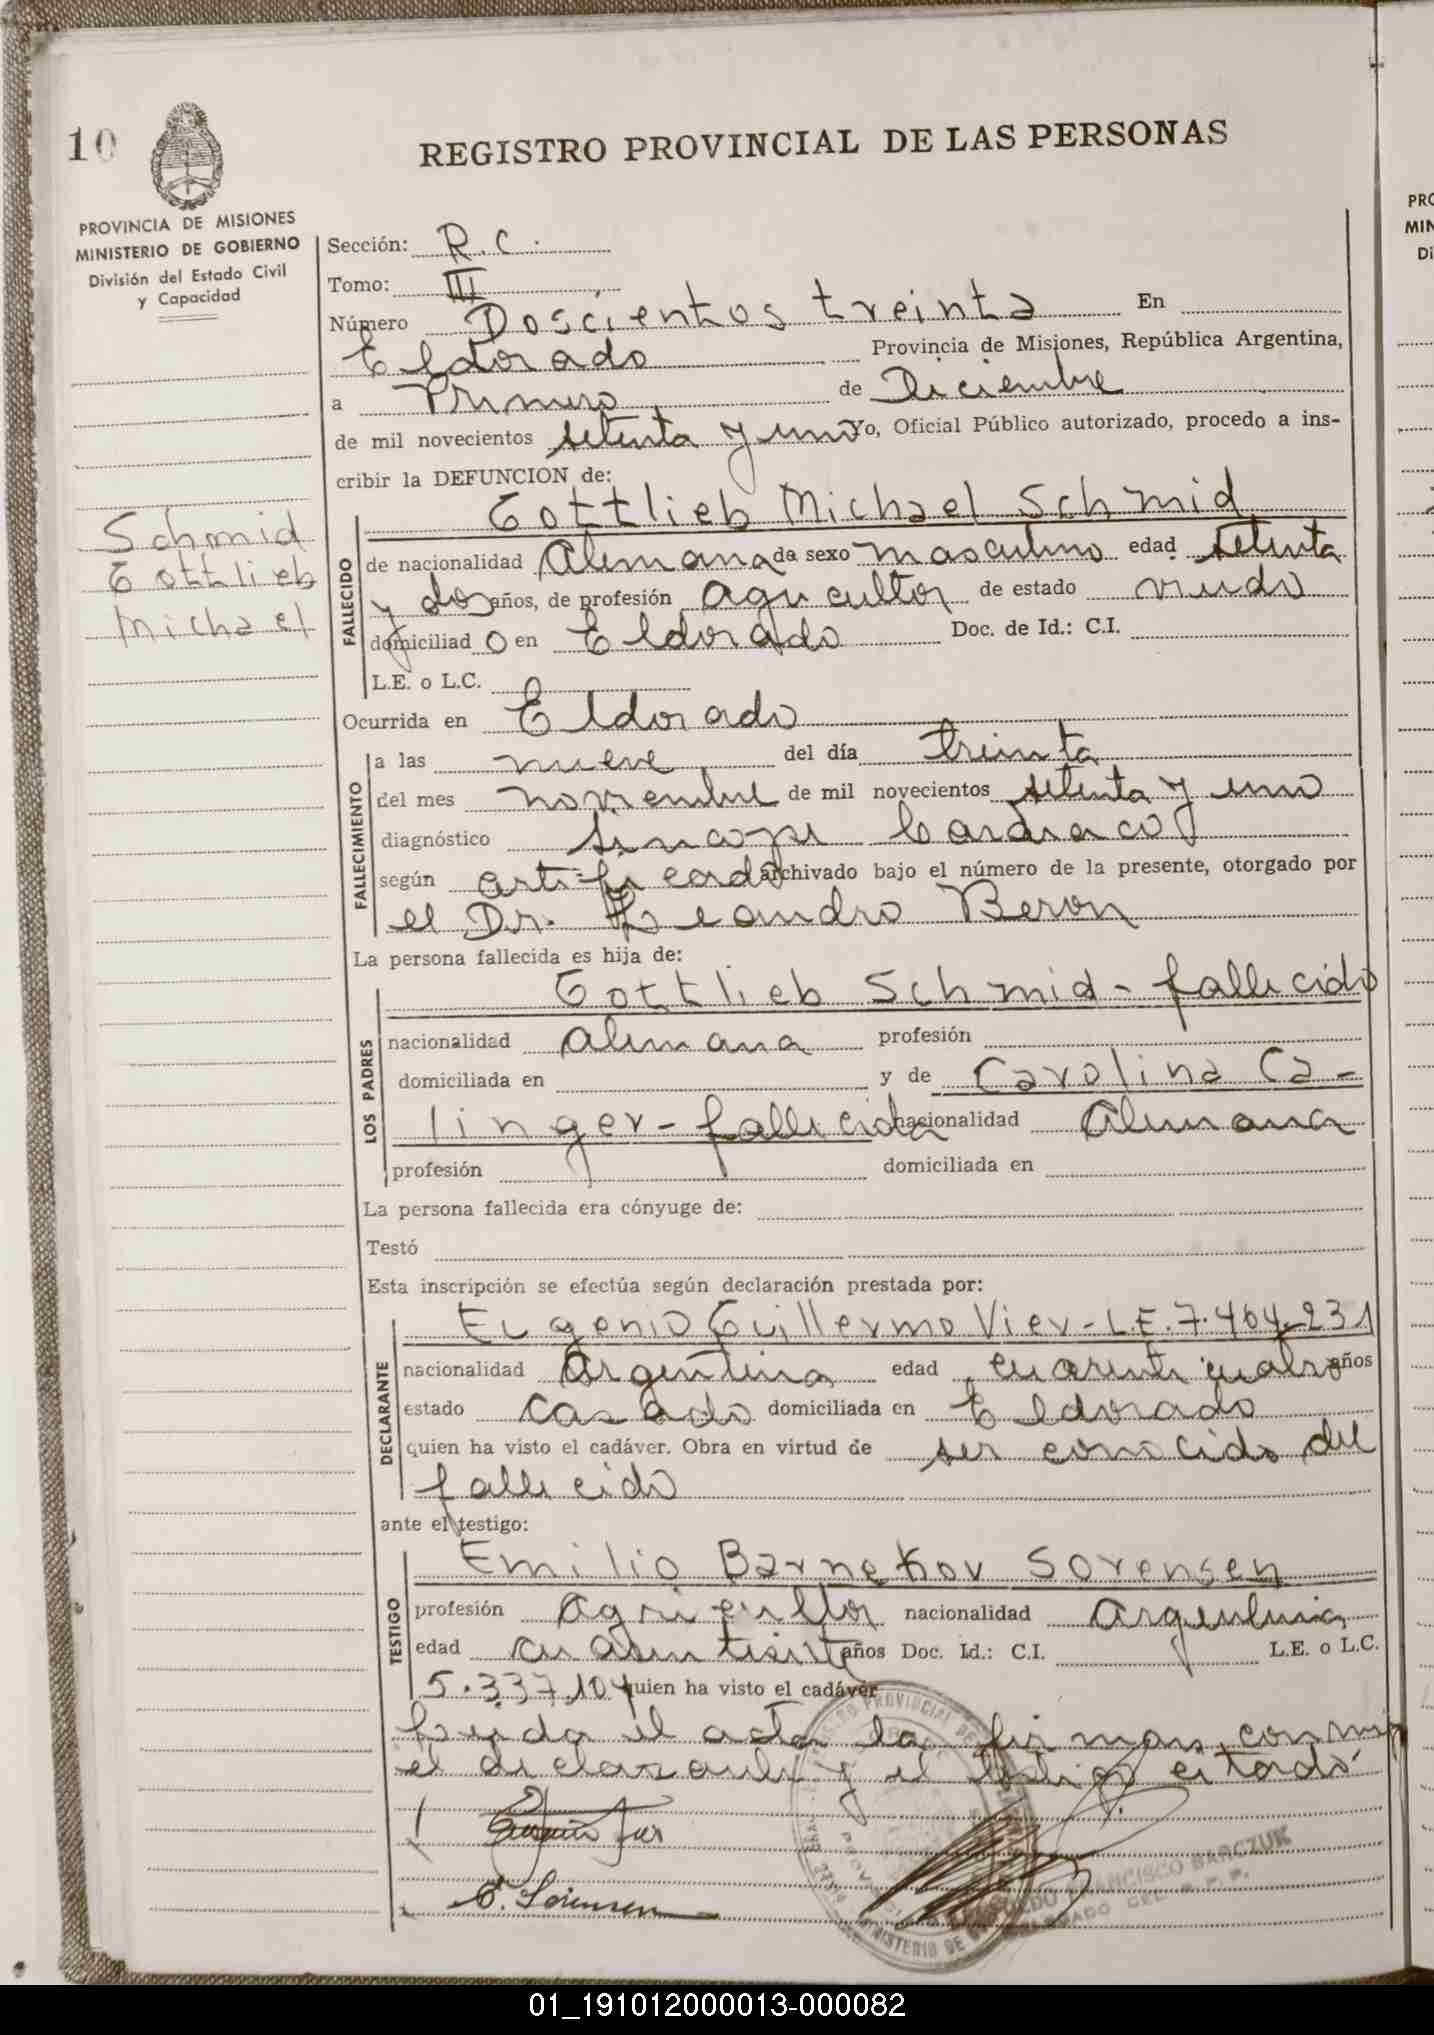 10
REGISTRO PROVINCIAL DE LAS PERSONAS
PROVINCIA DE MISIONES
MINISTERIO DE GOBIERNO
División del Estado Civil
y Capacidad
Sección: R.C.
Tomo: III
Número Doscientos treinta En
Eldorado Provincia de Misiones, República Argentina,
a Primero de Diciembre
de mil novecientos setenta y uno Yo, Oficial Público autorizado, procedo a ins-
cribir la DEFUNCION de:
Schmid
Gottlieb
Michael
FALLECIDO
Gottlieb Michael Schmid
de nacionalidad Alemana de sexo masculino edad setenta
y dos años, de profesión agricultor de estado viudo
domiciliad o en Eldorado Doc. de Id.: C.I.
L.E. o L.C.
Ocurrida en Eldorado
FALLECIMIENTO
a las nueve del día treinta
del mes noviembre de mil novecientos setenta y uno
diagnóstico cardiaco
según archivado bajo el número de la presente, otorgado por
el Dr. Leandro Beron
La persona fallecida es hija de:
LOS PADRES
Gottlieb Schmid - fallecido
nacionalidad alemana profesión
domiciliada en y de Carolina Ca-
linger - fallecida nacionalidad Alemana
profesión domiciliada en
La persona fallecida era cónyuge de:
Testó
Esta inscripción se efectúa según declaración prestada por:
DECLARANTE
Eugenio Guillermo Vier - L.E. 7.464.231
nacionalidad Argentina edad cuarenti cuatro años
estado Casado domiciliada en Eldorado
quien ha visto el cadáver. Obra en virtud de ser conocido del
fallecido
ante el testigo:
TESTIGO
Emilio Barnekov Sorensen
profesión Agricultor nacionalidad Argentina
edad años Doc. Id.: C.I. L.E. o L.C.
5.337.104 quien ha visto el cadáver
leida el acta la firman conmigo
el declarante y el testigo citado
E. Sorensen
FRANCISCO BARCZUK
01_191012000013-000082